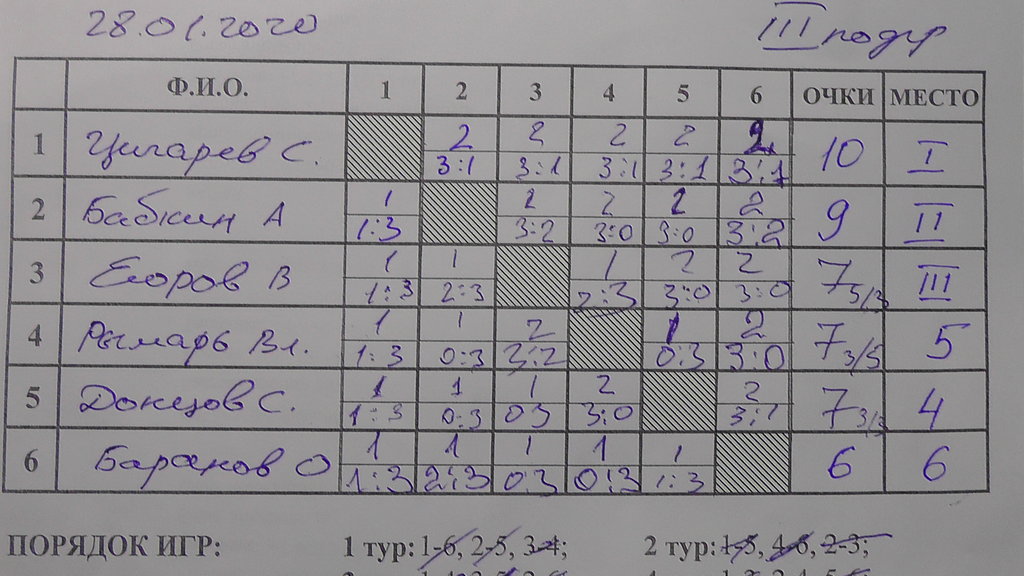 28.01.2020 III подгр
Ф.И.О. 1 2 3 4 5 6 ОЧКИ МЕСТО
1 Цигарев С. 2 2 2 2 2 10 I
3:1 3:1 3:1 3:1 3:1
2 Бабкин А 1 2 2 2 2 9 II
1:3 3:2 3:0 3:0 3:2
3 Егоров В 1 1 1 2 2 7 5/3 III
1:3 2:3 2:3 3:0 3:0
4 Рымарь Вл. 1 1 2 1 2 7 3/5 5
1:3 0:3 3:2 0:3 3:0
5 Донцов С. 1 1 1 2 2 7 3/3 4
1:3 0:3 03 3:0 3:1
6 Баранов О 1 1 1 1 1 6 6
1:3 2:3 0:3 0:3 1:3
ПОРЯДОК ИГР: 1 тур: 1-6, 2-5, 3-4; 2 тур: 1-5, 4-6, 2-3;